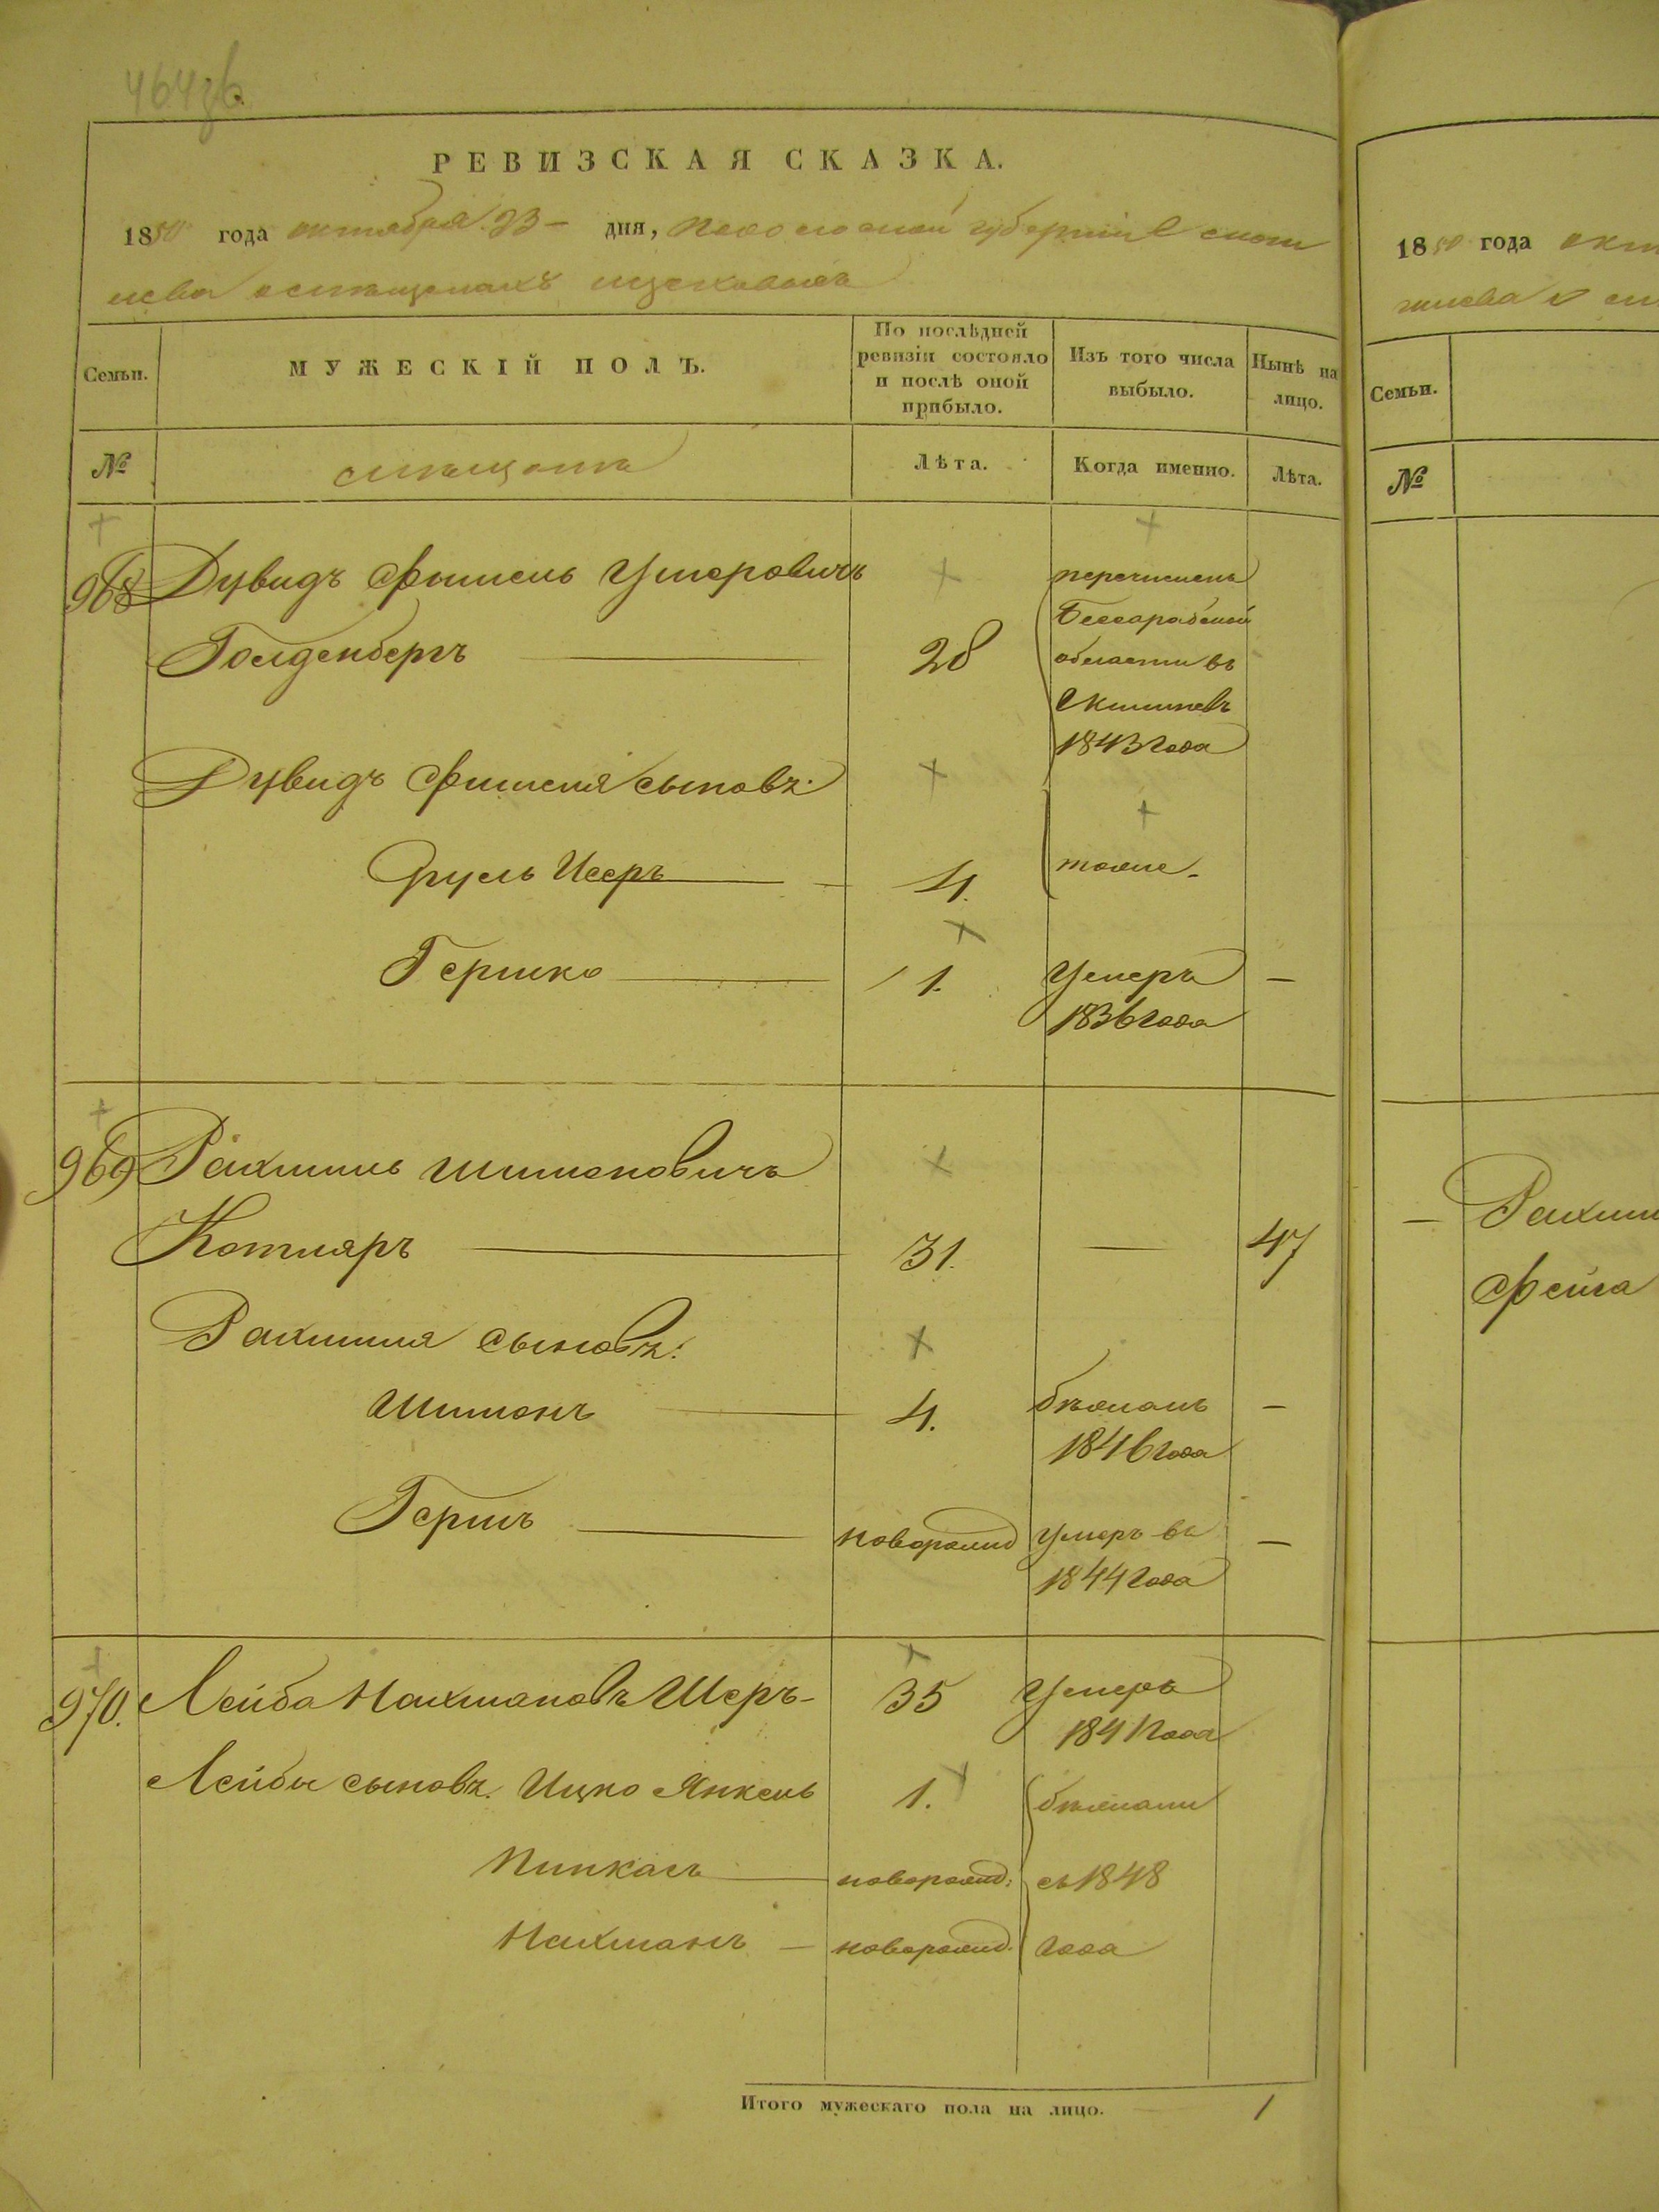 РЕВИЗСКАЯ СКАЗКА.
1850 года октября 23 дня, Подольской губерніи
о мѣщанахъ
Семьи.
МУЖЕСКІЙ ПОЛЪ.
По послѣдней ревизіи состояло и послѣ оной прибыло.
Изъ того числа выбыло.
Нынѣ на лицо.
№
мѣщане
Лѣта.
Когда именно.
Лѣта.
968 Дувидъ Фишель Умеровичъ
Голденбергъ
28
перечисленъ
Бессарабской
области въ
Кишиневъ
1843 года
Дувидъ Фишеля сыновъ:
Сруль Исеръ
4.
тоже
Гершко
1.
Умеръ
1836 года
969 Рахмиль Шимоновичъ
Котляръ
31.
47
Рахмиля сыновъ:
Шимонъ
4.
бѣжалъ
1846 года
Гершъ
новорожд
умеръ въ
1844 года
970. Лейба Нахмановъ Шеръ
35
Умеръ
1841 года
Лейбы сыновъ. Ицко Янкель
1.
бѣжали
Пинкасъ
новорожд:
съ 1848
Нахманъ
новорожд.
года
Итого мужескаго пола на лицо.
1
1850 года
Семьи.
№
Фейга